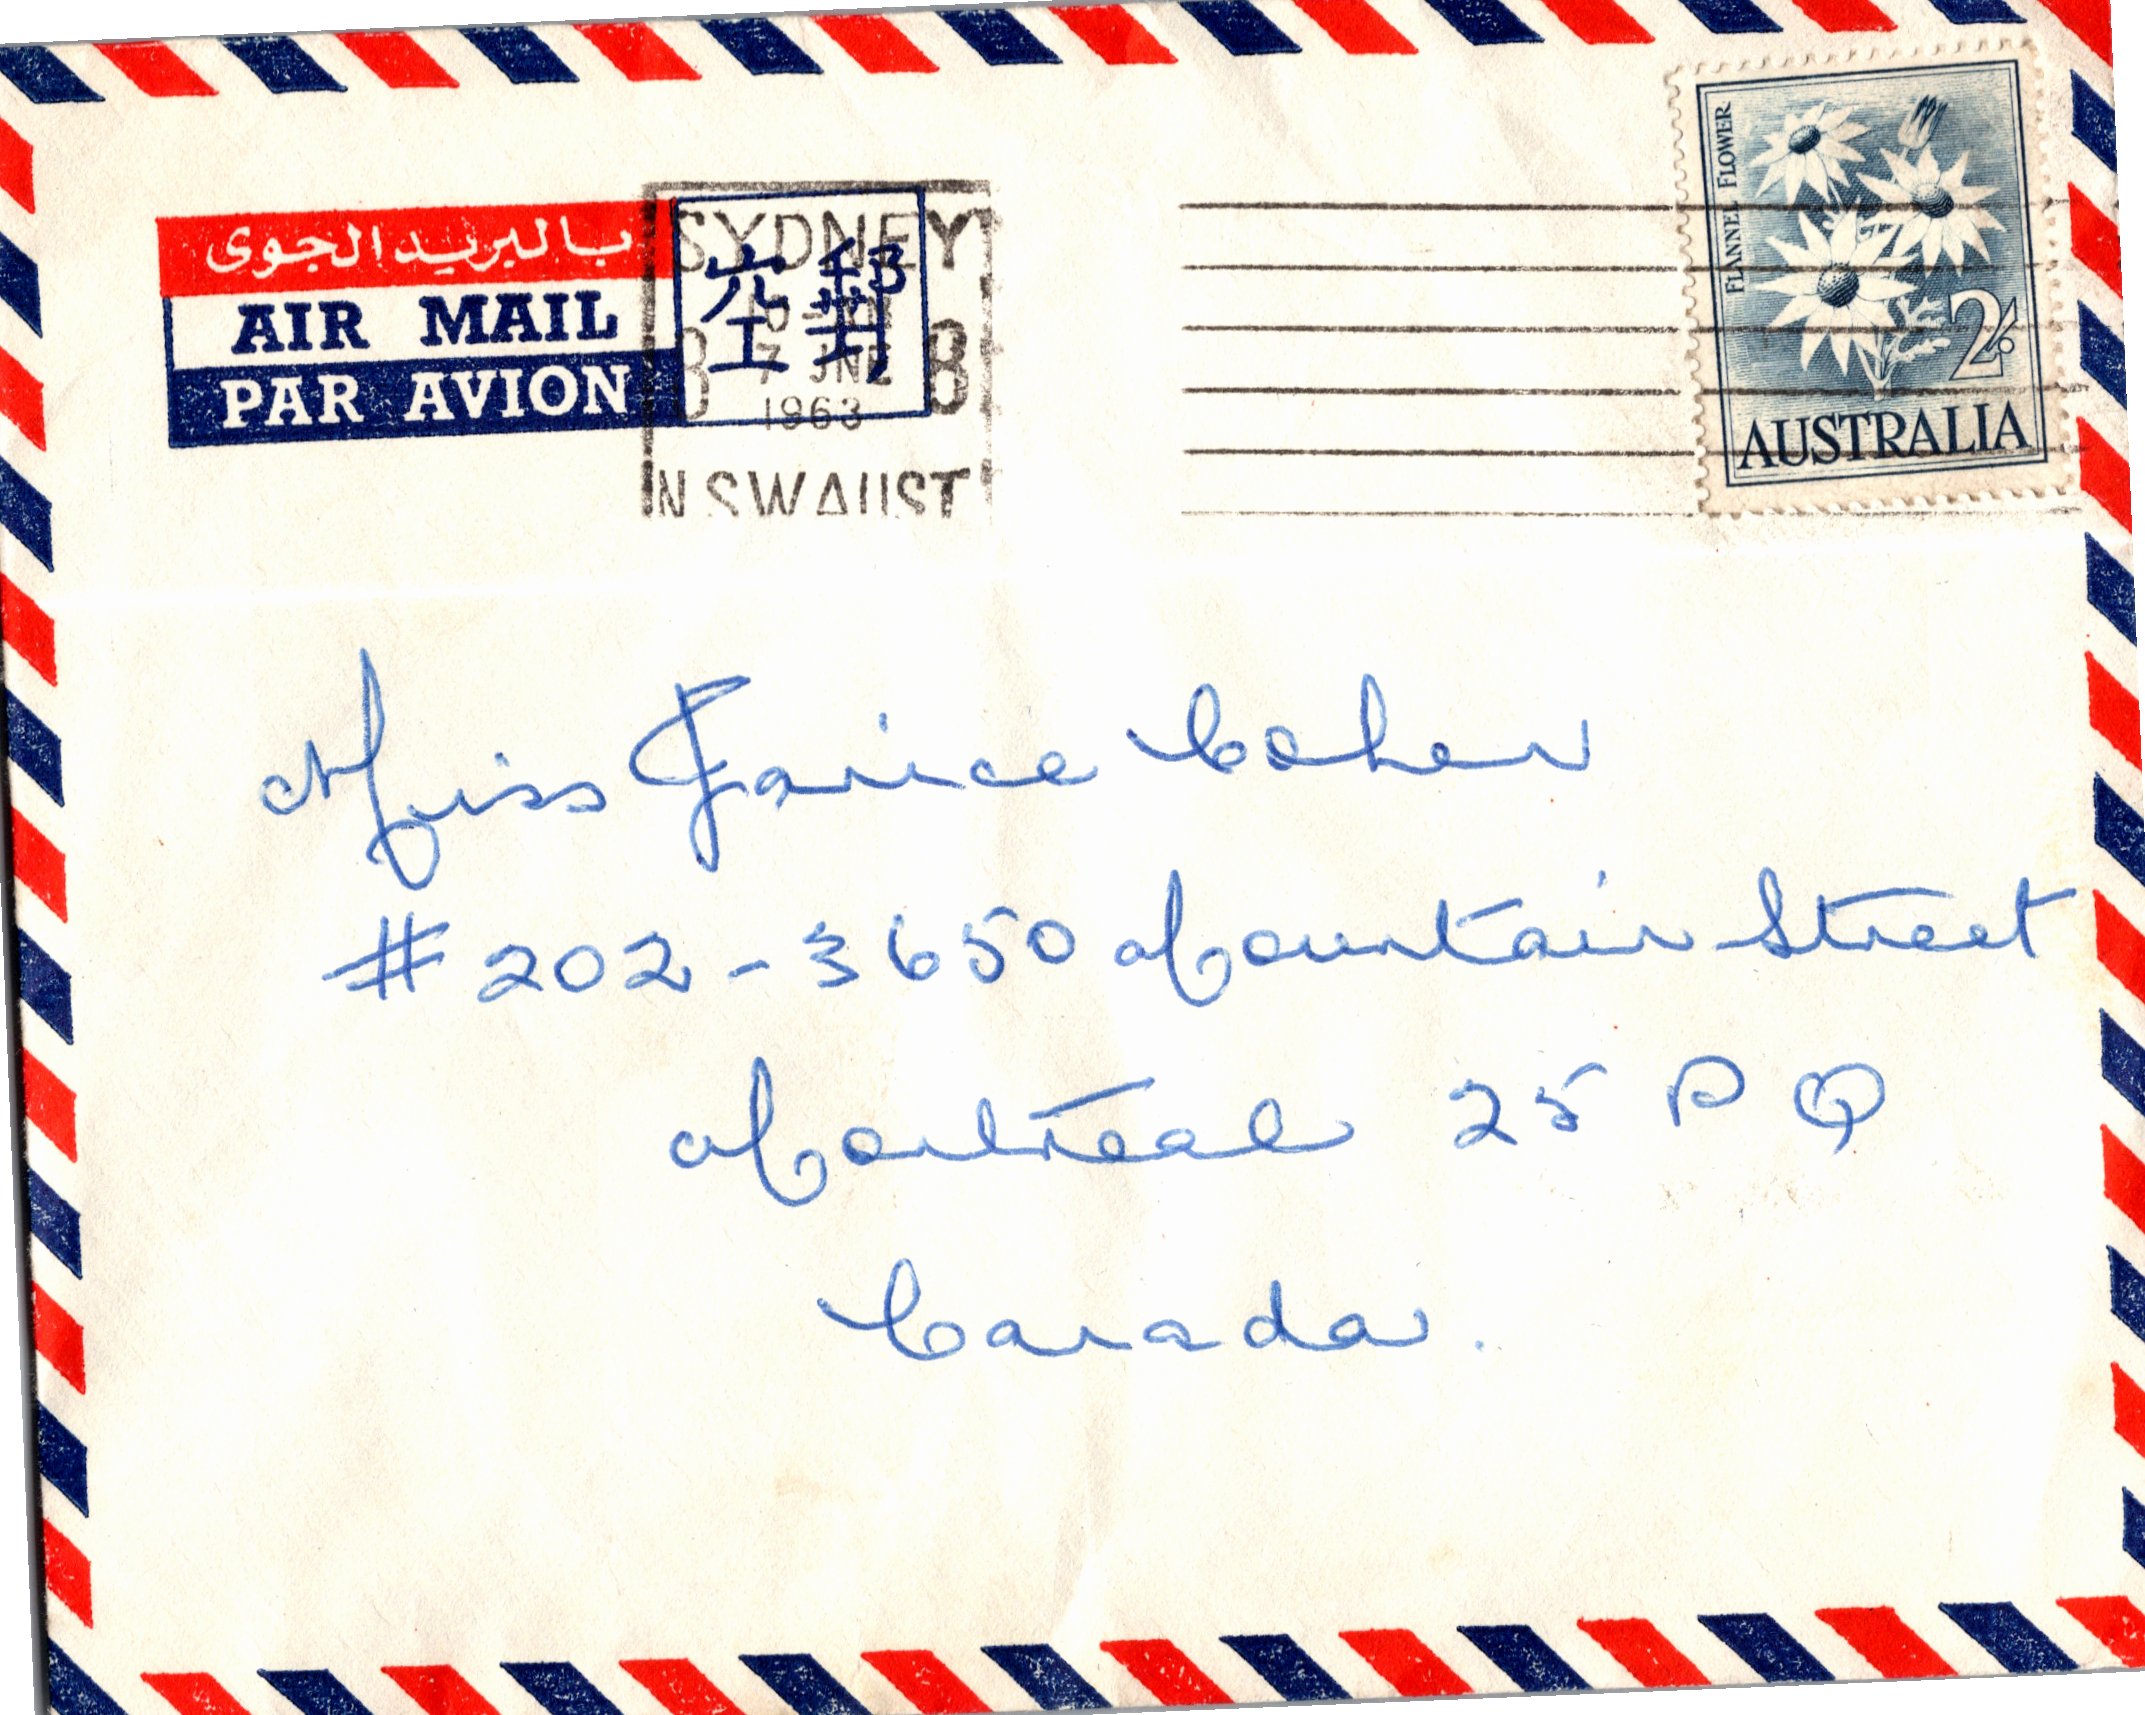 بالبريد الجوى
AIR MAIL
PAR AVION
郵空
SYDNEY
7 JNE
1963
N.S.W. AUST
FLANNEL FLOWER
2/-
AUSTRALIA
Miss Janice Cohen
# 202 - 3650 Mountain Street
Montreal 25 P Q
Canada.